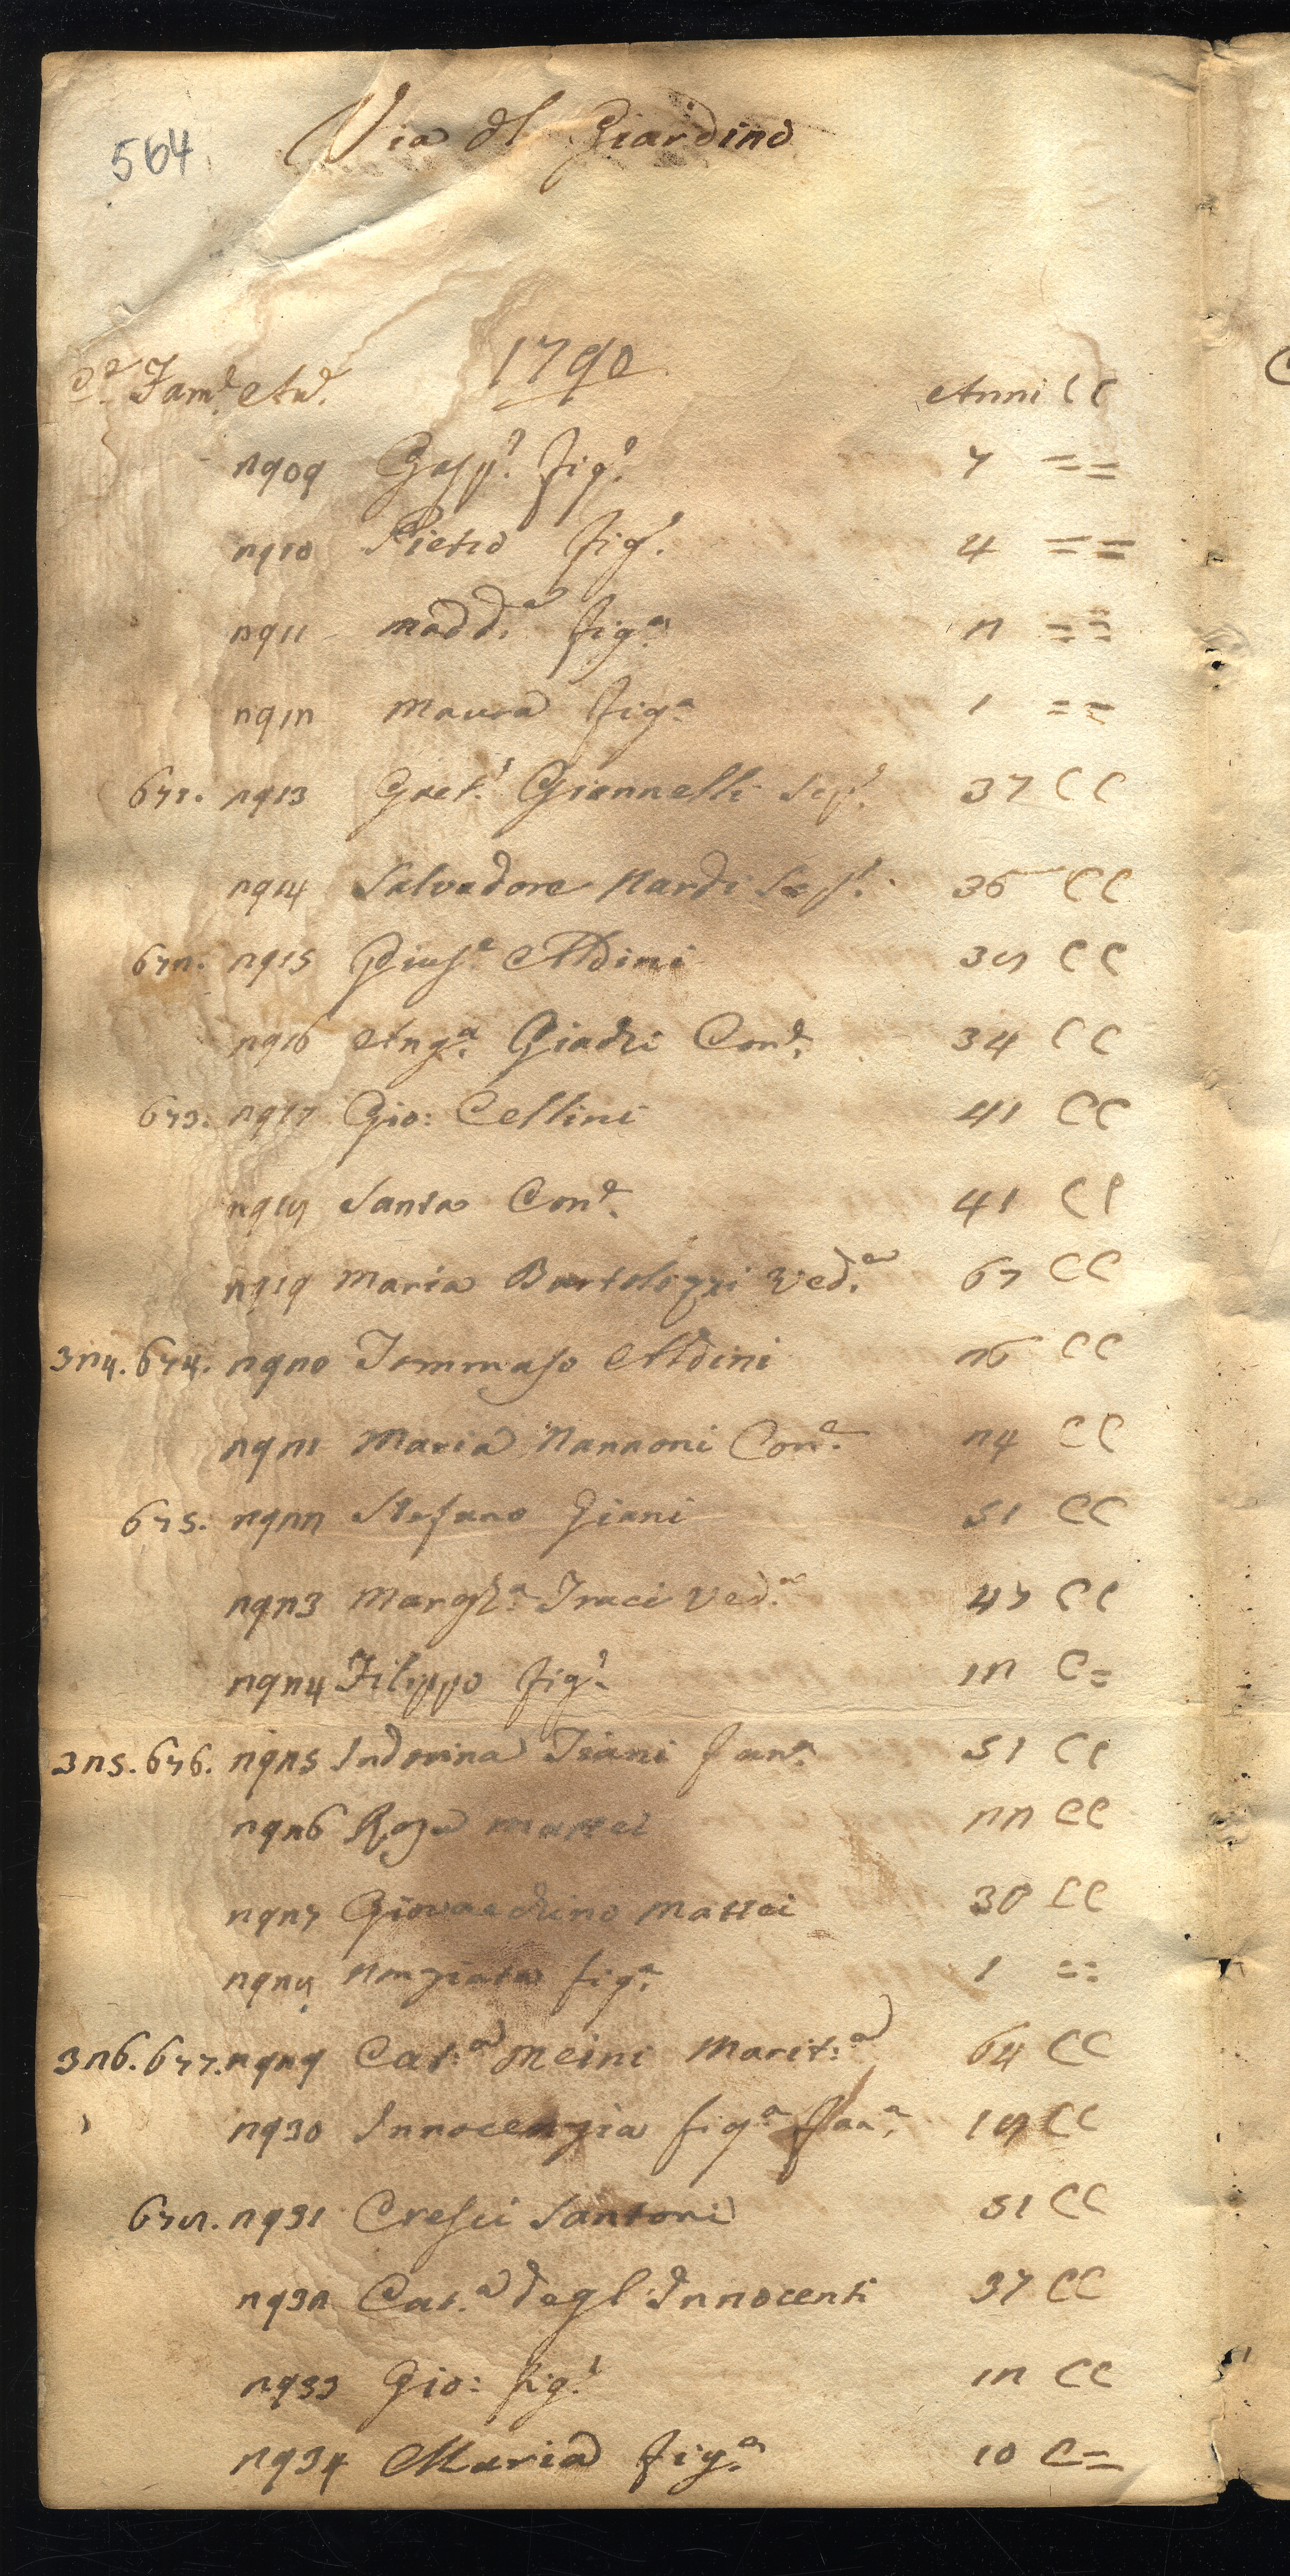 564
Via dl Giardino
1790
Cᵉ Famᵉ. And. Anni CC
2909 Gasp.ᵉ fig.ᵒ 7 = =
2910 Pietro fig.ᵒ 4 = =
2911 Madd.ᵃ fig.ᵃ 2 = =
2912 Maura fig.ᵃ 1 = =
671. 2913 Gaet.ᵒ Giannelli Sep.ᵒ 37 CC
2914 Salvadore Nardi Sep.ᵒ 36 CC
672. 2915 Gius.ᵉ Aldini 38 CC
2916 Ang.ᵃ Giachi Con.ᵉ 34 CC
673. 2917 Gio: Cellini 41 CC
2918 Santa Con.ᵉ 41 CC
2919 Maria Bartolozzi Ved.ᵃ 67 CC
324. 674. 2920 Tommaso Aldini 26 CC
2921 Maria Nannoni Con.ᵉ 24 CC
675. 2922 Stefano Giani 51 CC
2923 Margh.ᵃ Traci Ved.ᵃ 47 CC
2924 Filippo fig.ᵒ 12 C=
325. 676. 2925 Indovina Isiani fan.ᵃ 51 CC
2926 Rosa Mattei 22 CC
2927 Giovacchino Mattei 30 CC
2928 Nunziata fig.ᵃ 1 ==
326. 677. 2929 Cat.ᵃ Meini Marit.ᵃ 64 CC
2930 Innocenzia fig.ᵃ fan.ᵃ 18 CC
678. 2931 Cresci Santoni 51 CC
2932 Cat.ᵃ degl'Innocenti 37 CC
2933 Gio: fig.ᵒ 12 CC
2934 Maria fig.ᵃ 10 C=